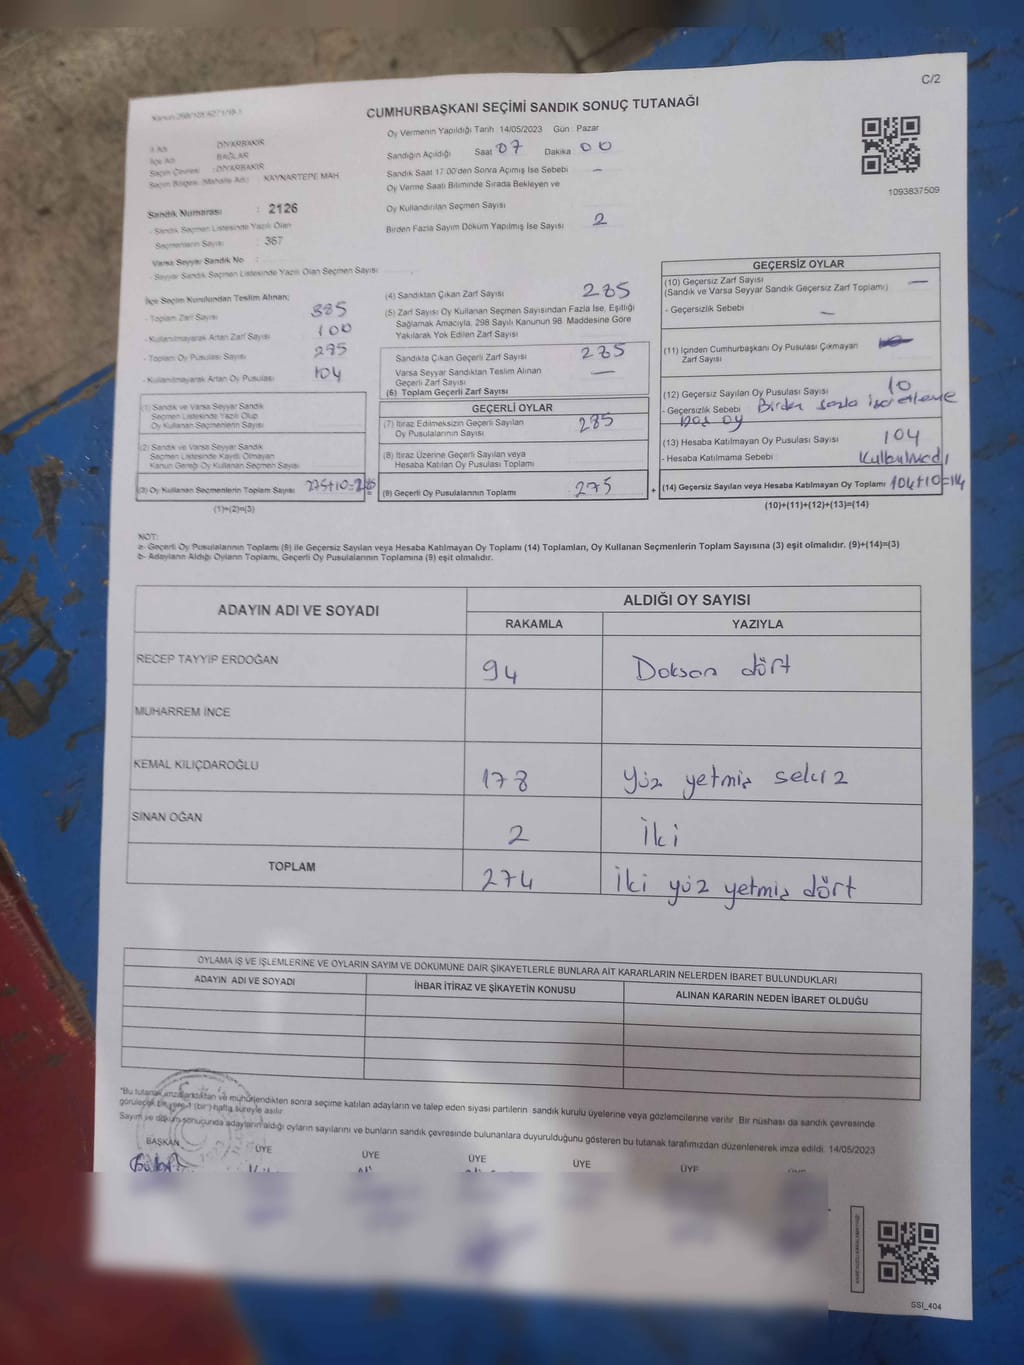 C/2
CUMHURBAŞKANI SEÇİMİ SANDIK SONUÇ TUTANAĞI
Oy Vermenin Yapıldığı Tarih 14/05/2023 Gün : Pazar
Sandığın Açıldığı Saat 07 Dakika 00
Sandık Saat 17:00'den Sonra Açımış İse Sebebi –
Oy Verme Saati Bitiminde Sırada Bekleyen ve
Oy Kullandırılan Seçmen Sayısı
Birden Fazla Sayım Döküm Yapılmış İse Sayısı 2
1093837509
İl Adı DİYARBAKIR
İlçe Adı BAĞLAR
Seçim Çevresi : DİYARBAKIR
Seçim Bölgesi (Mahalle Adı) : KAYNARTEPE MAH
Sandık Numarası : 2126
- Sandık Seçmen Listesinde Yazılı Olan
Seçmenlerin Sayısı : 367
Varsa Seyyar Sandık No :
- Seyyar Sandık Seçmen Listesinde Yazılı Olan Seçmen Sayısı
İlçe Seçim Kurulundan Teslim Alınan;
- Toplam Zarf Sayısı 385
- Kullanılmayarak Artan Zarf Sayısı 100
- Toplam Oy Pusulası Sayısı
- Kullanılmayarak Artan Oy Pusulası 104
(1) Sandık ve Varsa Seyyar Sandık
Seçmen Listesinde Yazılı Olup
Oy Kullanan Seçmenlerin Sayısı
(2) Sandık ve Varsa Seyyar Sandık
Seçmen Listesinde Kayıtlı Olmayan
Kanun Gereği Oy Kullanan Seçmen Sayısı
(3) Oy Kullanan Seçmenlerin Toplam Sayısı 275+10=285
(1)+(2)=(3)
(4) Sandıktan Çıkan Zarf Sayısı 285
(5) Zarf Sayısı Oy Kullanan Seçmen Sayısından Fazla İse, Eşitliği
Sağlamak Amacıyla, 298 Sayılı Kanunun 98. Maddesine Göre
Yakılarak Yok Edilen Zarf Sayısı
Sandıkta Çıkan Geçerli Zarf Sayısı 285
Varsa Seyyar Sandıktan Teslim Alınan
Geçerli Zarf Sayısı —
(6) Toplam Geçerli Zarf Sayısı
GEÇERLİ OYLAR
(7) İtiraz Edilmeksizin Geçerli Sayılan
Oy Pusulalarının Sayısı 285
(8) İtiraz Üzerine Geçerli Sayılan veya
Hesaba Katılan Oy Pusulası Toplamı
(9) Geçerli Oy Pusulalarının Toplamı 275
+
GEÇERSİZ OYLAR
(10) Geçersiz Zarf Sayısı —
(Sandık ve Varsa Seyyar Sandık Geçersiz Zarf Toplamı)
- Geçersizlik Sebebi –
(11) İçinden Cumhurbaşkanı Oy Pusulası Çıkmayan
Zarf Sayısı
(12) Geçersiz Sayılan Oy Pusulası Sayısı 10
- Geçersizlik Sebebi Birden fazla işaretleme
boş oy
(13) Hesaba Katılmayan Oy Pusulası Sayısı 104
- Hesaba Katılmama Sebebi Kullanılmadı
(14) Geçersiz Sayılan veya Hesaba Katılmayan Oy Toplamı 104+10=114
(10)+(11)+(12)+(13)=(14)
NOT:
a- Geçerli Oy Pusulalarının Toplamı (9) ile Geçersiz Sayılan veya Hesaba Katılmayan Oy Toplamı (14) Toplamları, Oy Kullanan Seçmenlerin Toplam Sayısına (3) eşit olmalıdır. (9)+(14)=(3)
b- Adayların Aldığı Oyların Toplamı, Geçerli Oy Pusulalarının Toplamına (9) eşit olmalıdır.
ADAYIN ADI VE SOYADI
ALDIĞI OY SAYISI
RAKAMLA YAZIYLA
RECEP TAYYİP ERDOĞAN 94 Doksan dört
MUHARREM İNCE
KEMAL KILIÇDAROĞLU 178 Yüz yetmiş sekiz
SİNAN OĞAN 2 İki
TOPLAM 274 İki yüz yetmiş dört
OYLAMA İŞ VE İŞLEMLERİNE VE OYLARIN SAYIM VE DÖKÜMÜNE DAİR ŞİKAYETLERLE BUNLARA AİT KARARLARIN NELERDEN İBARET BULUNDUKLARI
ADAYIN ADI VE SOYADI İHBAR İTİRAZ VE ŞİKAYETİN KONUSU ALINAN KARARIN NEDEN İBARET OLDUĞU
*Bu tutanak imzalandıktan ve mühürlendikten sonra seçime katılan adayların ve talep eden siyasi partilerin sandık kurulu üyelerine veya gözlemcilerine verilir. Bir nüshası da sandık çevresinde
görülecek bir yere 1 (bir) hafta süreyle asılır.
Sayım ve döküm sonucunda adayların aldığı oyların sayılarını ve bunların sandık çevresinde bulunanlara duyurulduğunu gösteren bu tutanak tarafımızdan düzenlenerek imza edildi. 14/05/2023
BAŞKAN ÜYE ÜYE ÜYE ÜYE ÜYE
SSI_404